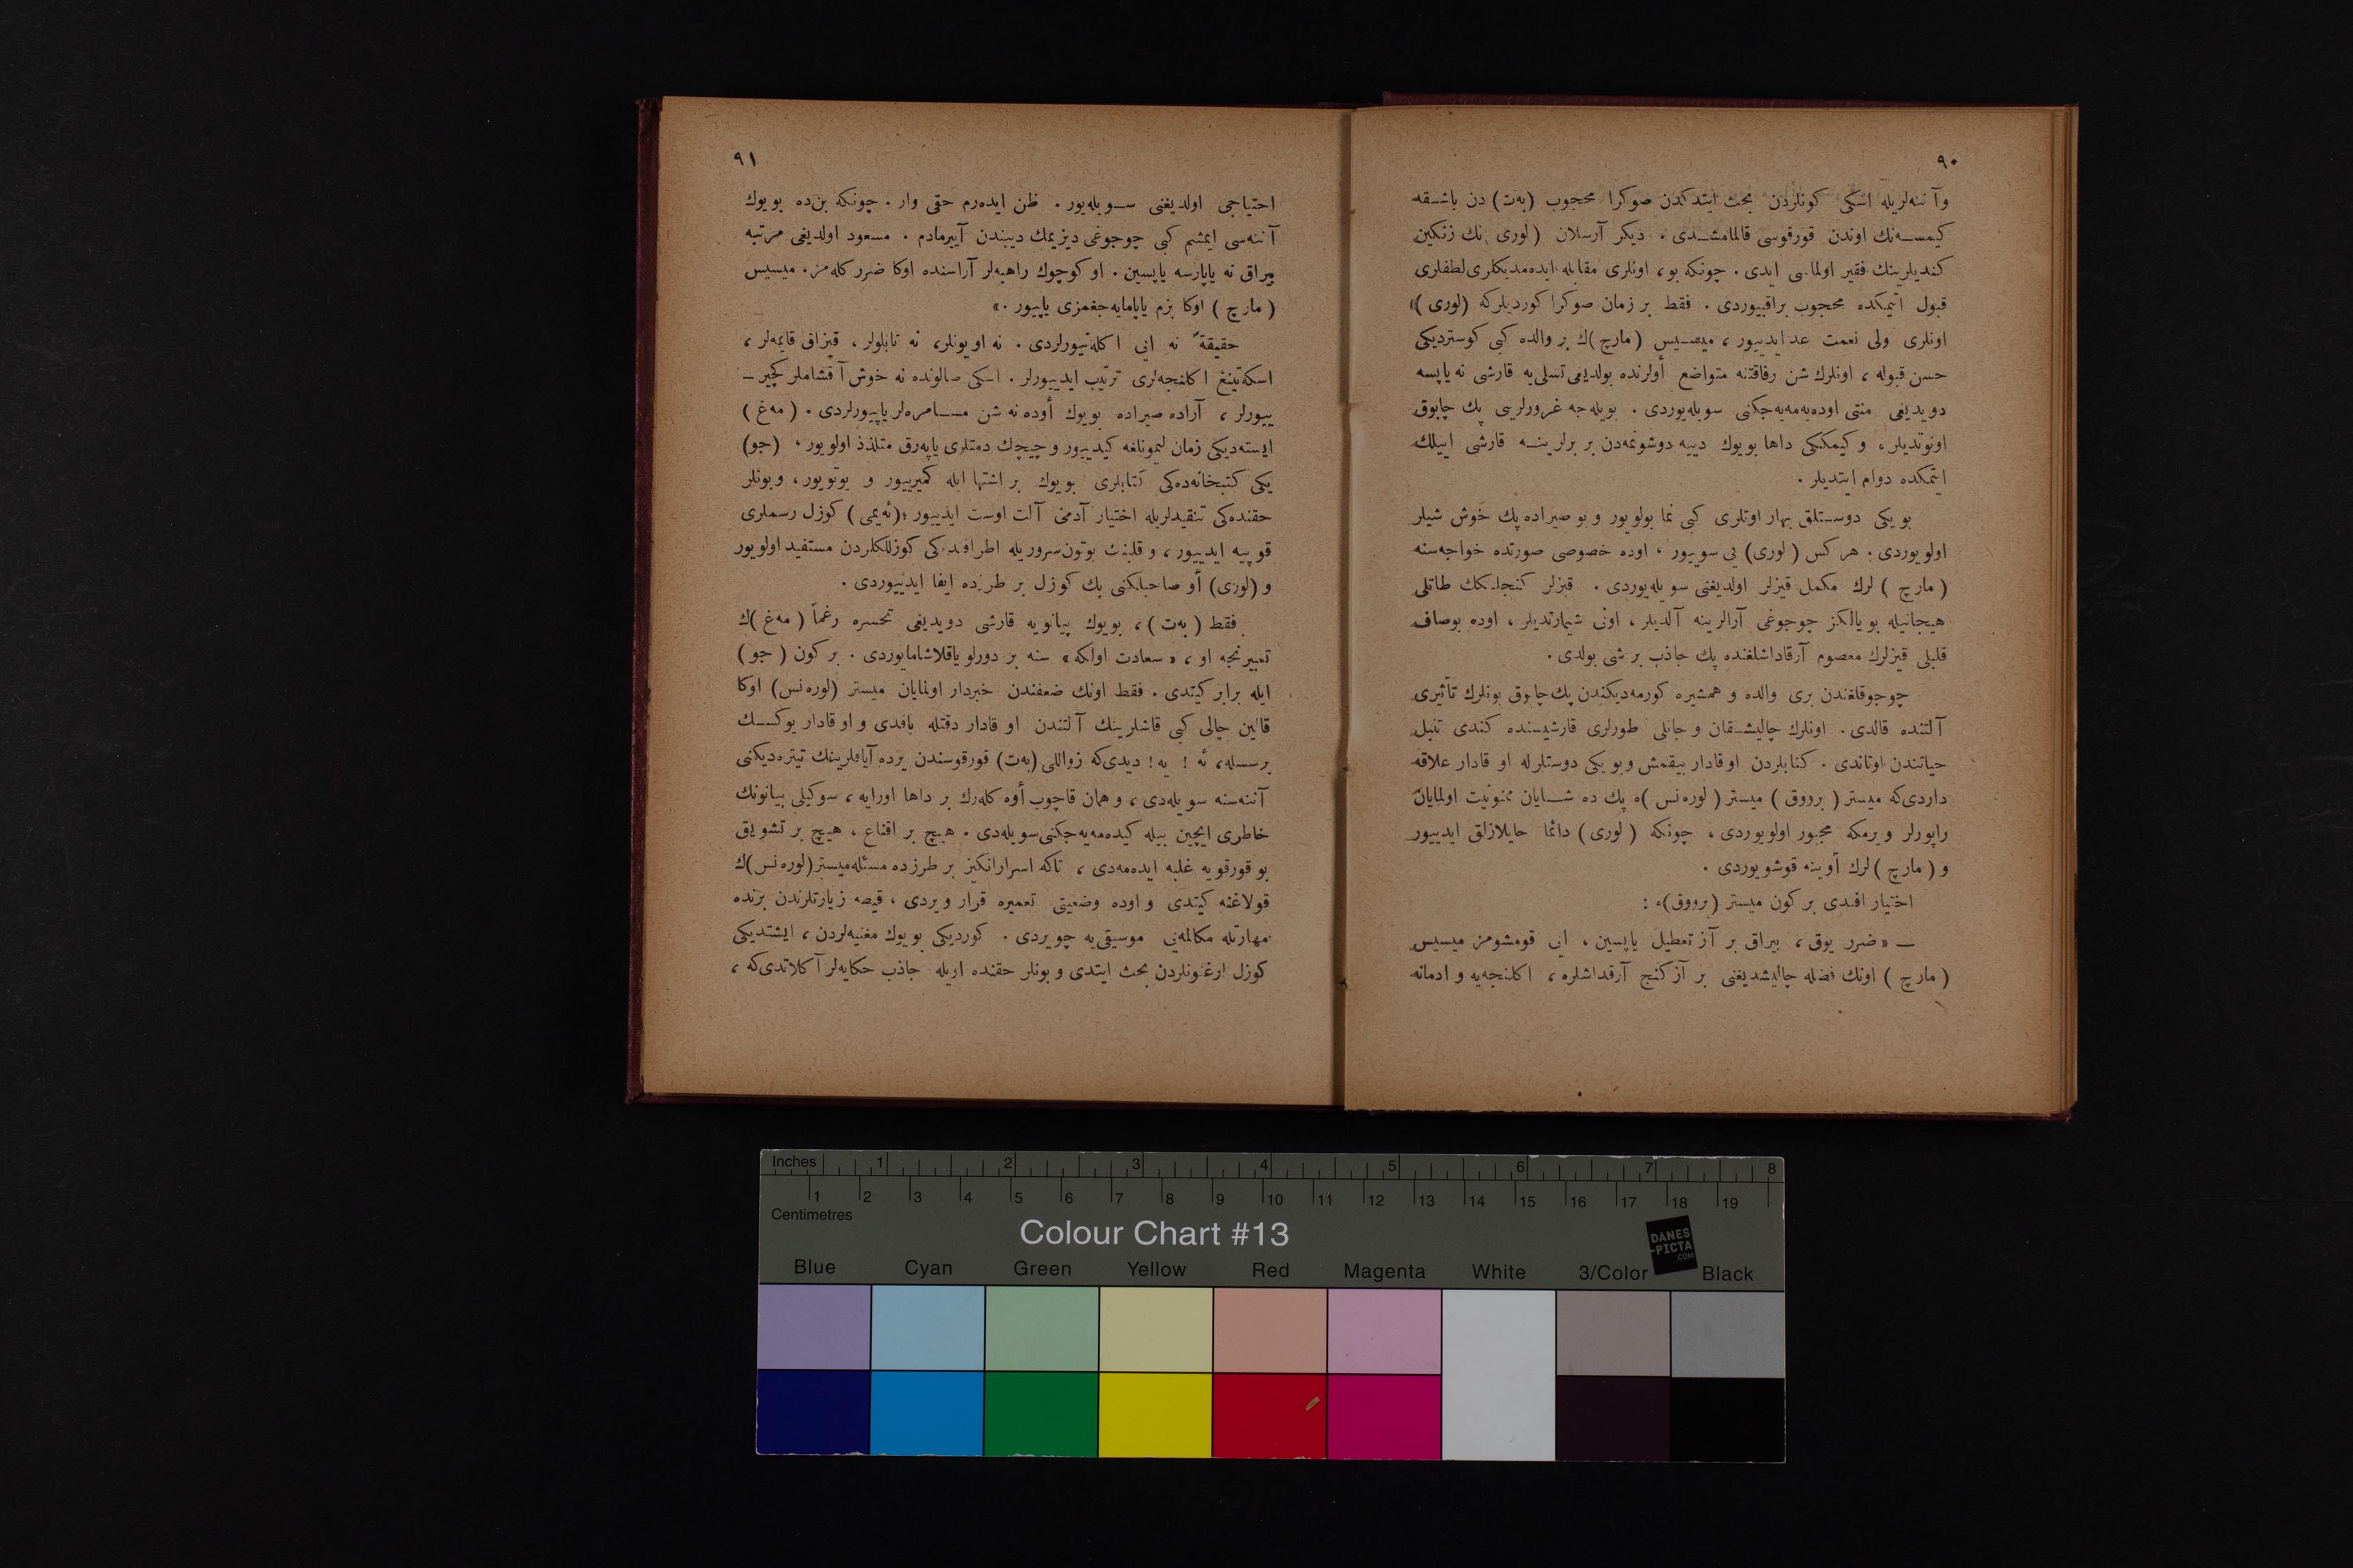 ٩٠
وآننه‌لریله اسكی كونلردن بحث ایتدكدن صوكرا محجوب (به‌ت) دن باشـقه
كیمسـه‌نك اوندن قورقوسی قالمامشـدی. دیكر آرسلان (لوری) نك زنكین
كندیلرینك فقیر اولماسی ایدی. چونكه بو، اونلری مقابله ایده‌مدیكلری لطفلری
قبول اتمكده محجوب براقییوردی. فقط بر زمان صوكرا كوردیلركه (لوری)
اونلری ولی نعمت عد ایدییور، میسیس (مارچ)ك بر والده كبی كوستردیكی
حسن قبوله، اونلرك شن رفاقتنه متواضع أولرنده بولدیغی تسلی‌یه قارشی نه یاپسه
دویدیغی منتی اوده‌یه‌مه‌یه‌جكنی سویله‌یوردی. بویله‌جه غرورلرینی پك چابوق
اونوتدیلر، و كیمكنكی داها بویوك دییه دوشونمه‌دن بر برلرینـه قارشی اییلك
ایتمكده دوام ایتدیلر.
بو یكی دوسـتلق بهار اوتلری كبی نما بولویور و بو صیراده پك خوش شیلر
اولویوردی. هر كس (لوری) یی سوییور، اوده خصوصی صورتده خواجه‌سنه
(مارچ) لرك مكمل قیزلر اولدیغنی سویله‌یوردی. قیزلر كنجلككك طاتلی
هیجانیله بو یالكز چوجوغی آرالرینه آلدیلر، اونی شیمارتدیلر، اوده بوصاف
قلبلی قیزلرك معصوم آرقاداشلغنده پك جاذب بر شی بولدی.
چوجوقلغندن بری والده و همشیره كورمه‌دیكندن پك چابوق بونلرك تأثیری
آلتنده قالدی. اونلرك چالیشـقان و جانلی طورلری قارشیسنده كندی تنبل
حیاتندن اوتاندی. كتابلردن او قادار بیقمش و بو یكی دوستلرله او قادار علاقه
داردی‌كه میستر (برووق) میستر (لوره‌نس)ه پك ده شـایان ممنونیت اولمایان
راپورلر ویرمكه مجبور اولویوردی، چونكه (لوری) دائما حایلازلق ایدییور
و (مارچ)لرك أوینه قوشویوردی.
اختیار افندی بر كون میستر (برووق)ه :
— «ضرر یوق، بیراق بر آز تعطیل یاپسین، ایی قومشومز میسیس
(مارچ) اونك فضله چالیشدیغنی بر آز كنج آرقداشلره، اكلنجه‌یه و ادمانه
٩١
احتیاجی اولدیغنی سـویله‌یور. ظن ایده‌رم حقی وار. چونكه بن‌ده بویوك
آننه‌سی ایمشم كبی چوجوغی دیزیمك دیبندن آییرمادم. مسعود اولدیغی مرتبه
بیراق نه یاپارسه یاپسین. او كوچوك راهبه‌لر آراسنده اوكا ضرر كله‌مز. میسیس
(مارچ) اوكا بزم یاپامایه‌جغمزی یاپییور.»
حقیقةً نه ایی اكله‌نییورلردی. نه اویونلر، نه تابلولر، قیزاق قایمه‌لر،
اسكه‌تینغ اكلنجه‌لری ترتیب ایدییورلر. اسكی صالونده نه خوش آقشاملر كچیر–
ییورلر، آراده صیراده بویوك أوده نه شن مسـامره‌لر یاپییورلردی. (مه‌غ)
ایسته‌دیكی زمان لیمونلغه كیدییور و چیچك دمتلری یاپه‌رق متلذذ اولویور، (جو)
یكی كتبخانه‌ده‌كی كتابلری بویوك بر اشتها ایله كمیرییور و یوتویور، و بونلر
حقنده‌كی تنقیدلریله اختیار آدمی آلت اوست ایدییور؛ (ئه‌یمی) كوزل رسملری
قوپیه ایدییور، و قلبنك بوتون سروریله اطرافنده‌كی كوزللكلردن مستفید اولویور
و (لوری) أو صاحبلكنی پك كوزل بر طرزده ایفا ایدییوردی.
فقط (به‌ت)، بویوك پیانویه قارشی دویدیغی تحسره رغماً (مه‌غ)ك
تعبیرنجه او، «سعادت اولكه» سنه بر دورلو یاقلاشامایوردی. بر كون (جو)
ایله برابر كیتدی. فقط اونك ضعفندن خبردار اولمایان میستر (لوره‌نس) اوكا
قالین چالی كبی قاشلرینك آلتندن او قادار دقتله باقدی و او قادار یوكسـك
بر سسله، ئه ! یه! دیدی‌كه زواللی (به‌ت) قورقوسندن یرده آیاقلرینك تیتره‌دیكنی
آننه‌سنه سویله‌دی، و همان قاچوب أوه كله‌رك بر داها اورایه، سوكیلی پیانونك
خاطری ایچین بیله كیده‌مه‌یه‌جكنی سویله‌دی. هیچ بر اقناع، هیچ بر تشویق
بو قورقویه غلبه ایده‌مه‌دی، تاكه اسرارانكیز بر طرزده مسئله میستر (لوره‌نس)ك
قولاغنه كیتدی و اوده وضعیتی تعمیره قرار ویردی، قیصه زیارتلرندن برنده
مهارتله مكالمه‌یی موسیقی‌یه چویردی. كوردیكی بویوك مغنیه‌لردن، ایشتدیكی
كوزل ارغنونلردن بحث ایتدی و بونلر حقنده اویله جاذب حكایه‌لر آكلاتدی‌كه،
Inches 1 2 3 4 5 6 7 8
1 2 3 4 5 6 7 8 9 10 11 12 13 14 15 16 17 18 19
Centimetres
Colour Chart #13
DANES
-PICTA
.COM
Blue Cyan Green Yellow Red Magenta White 3/Color Black